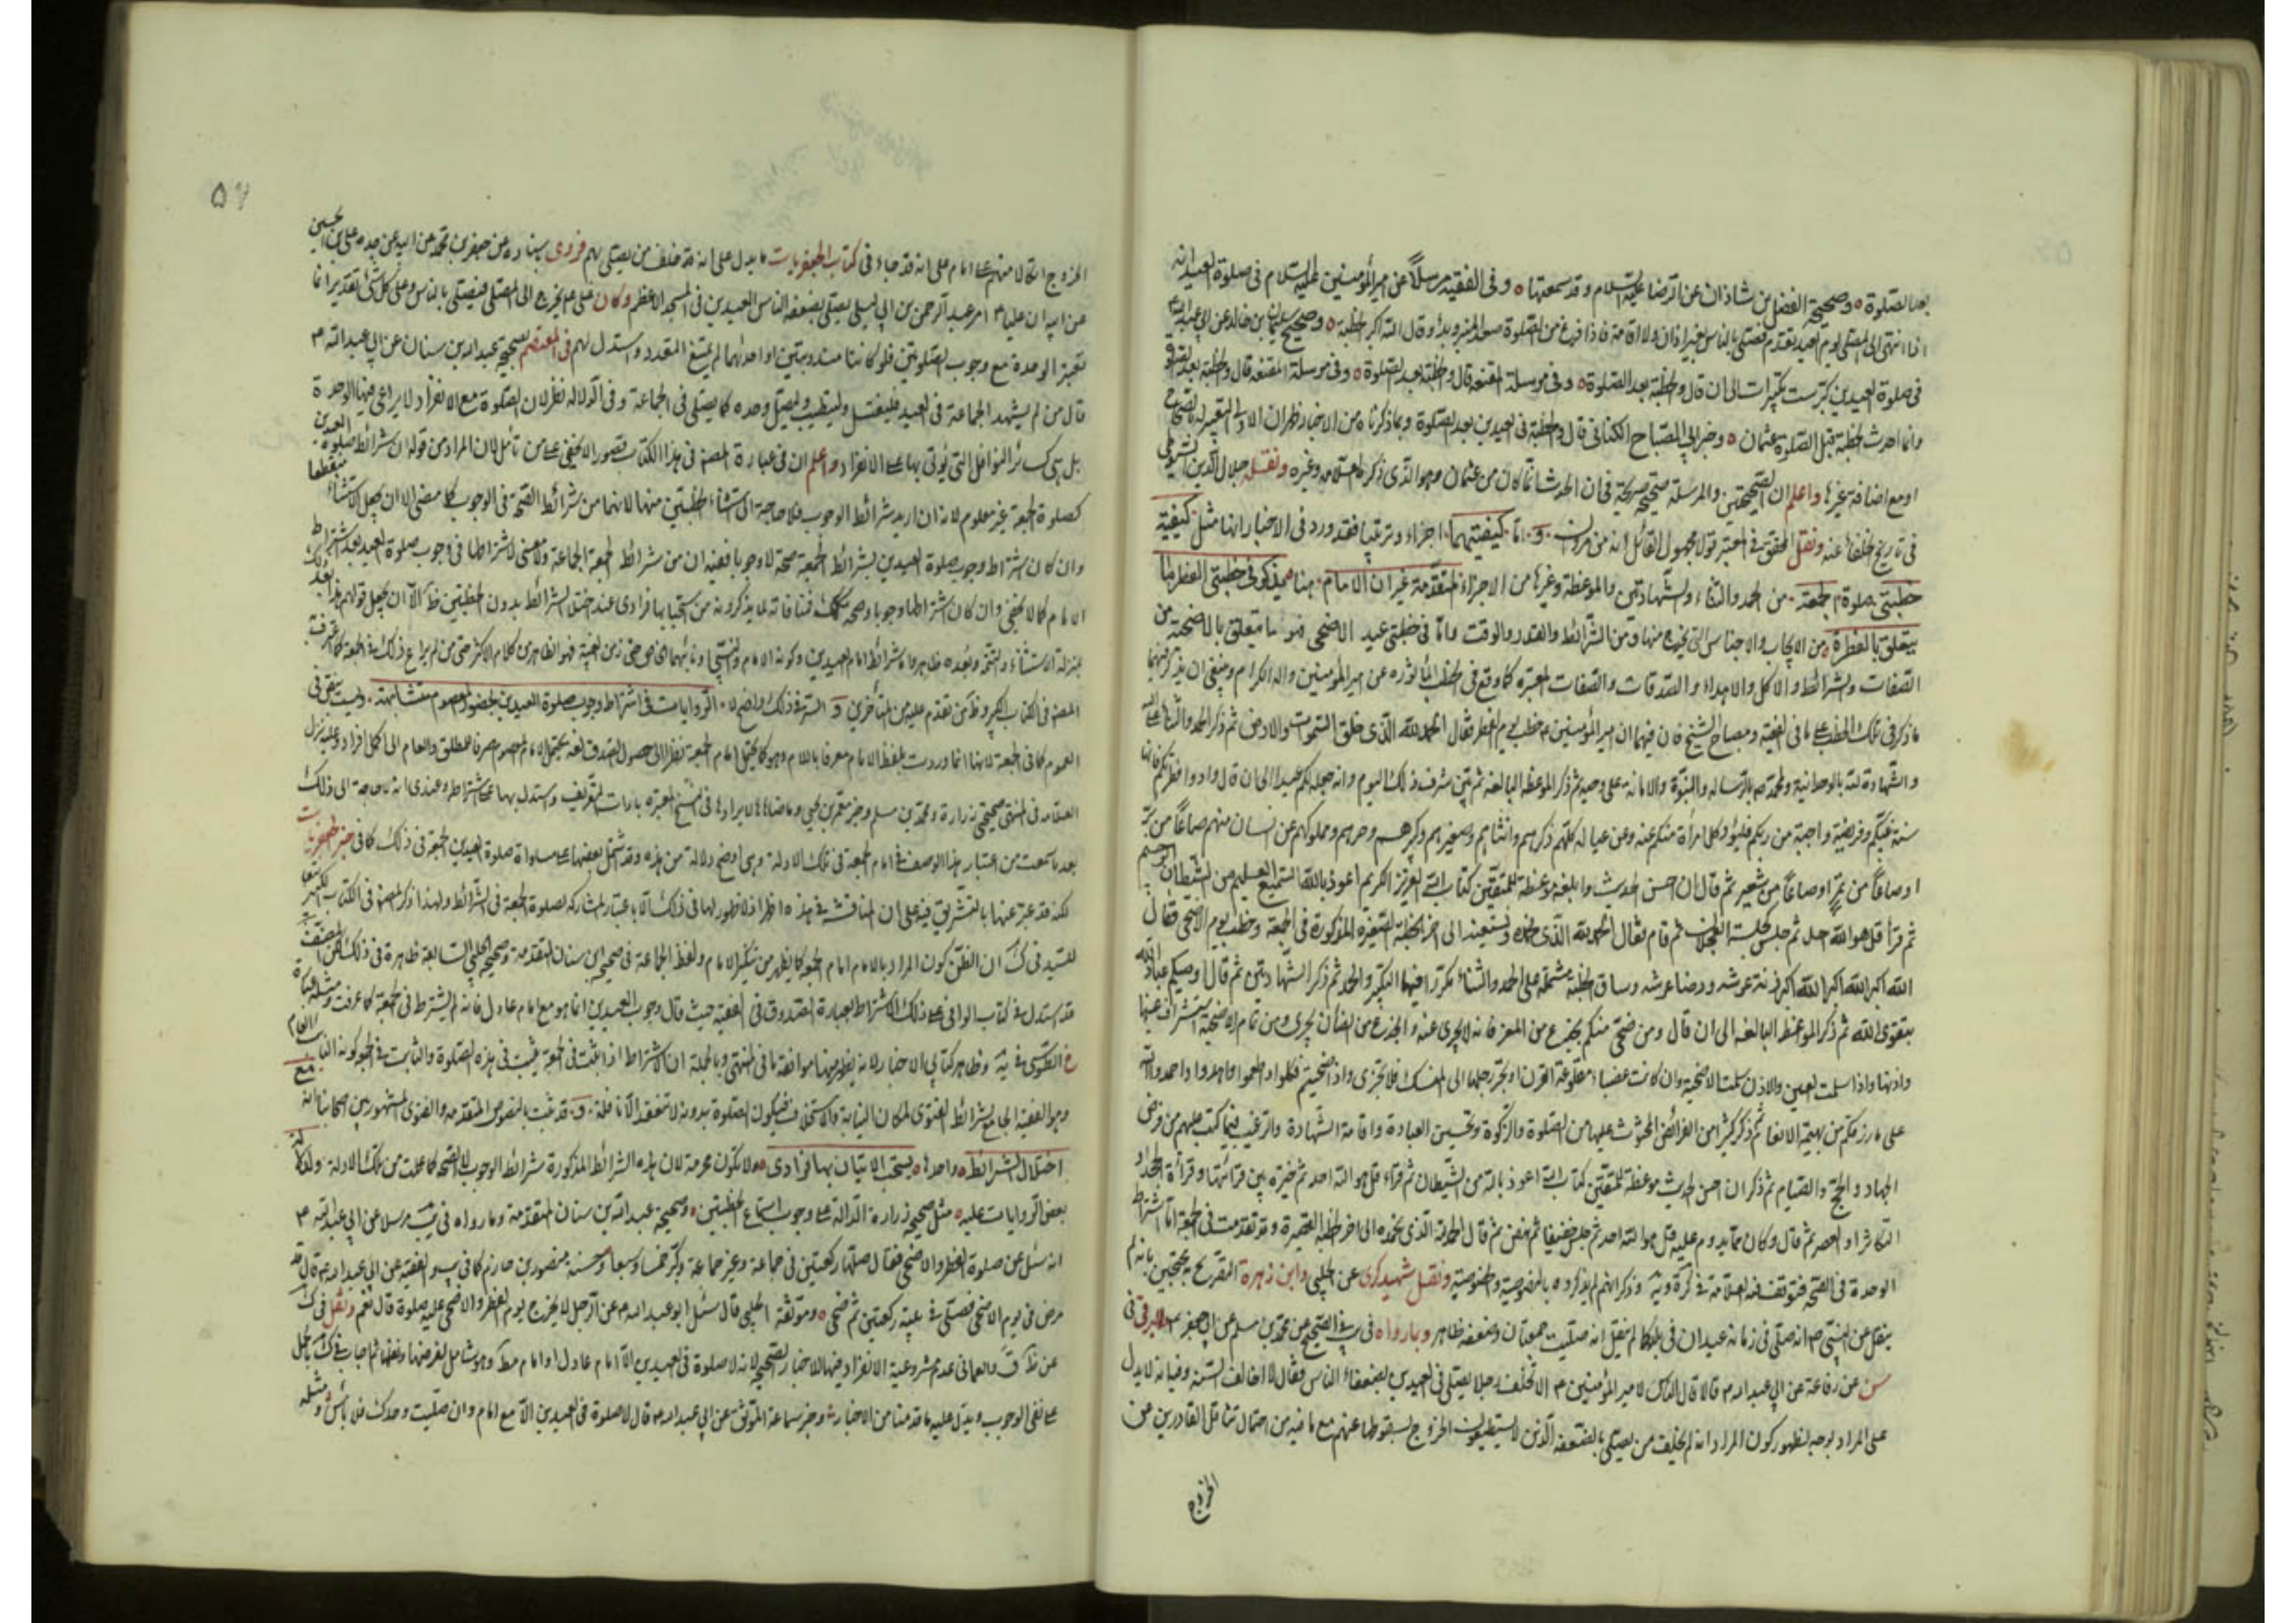 بعد الصلوة وصحيحة الفضل بن شاذان عن الرضا عليه السلام وقد سمعتها وفى الفقيه مرسلاً عن امير المؤمنين عليه السلام فى صلوة العيد انه
اذا انتهى الى المصلى يوم العيد تقدم فصلى بالناس بغير اذان ولا اقامة فاذا فرغ من الصلوة صعد المنبر وبدأ وقال الله اكبر الخطبة وصحيح سليمان بن خالد عن ابى عبد الله
فى صلوة العيدين كبر ست تكبيرات الى ان قال والخطبة بعد الصلوة وفى مرسلة المقنعة قال والخطبة بعد الصلوة
وانما احدث الخطبة قبل الصلوة عثمان وخبر ابى الصباح الكنانى قال والخطبة فى العيدين بعد الصلوة وبما ذكرناه من الاخبار
او مع اضافة غيرها واعلم ان الصحيحتين والمرسلة صحيحة صريحة فى ان الحدث انما كان من عثمان وهو الذى ذكره العلامة وغيره ونقل جلال الدين السيوطى
فى تاريخ الخلفاء عنه ونقل المحقق فى المعتبر قولا لمجهول القائل انه من مروان و اما كيفيتهما اجزاء وترتيبا فقد ورد فى الاخبار انها مثل كيفية
خطبتى صلوة الجمعة من الحمد والثناء والشهادتين والموعظة وغيرها من الاجزاء المتقدمة غير ان الامام هنا يذكر فى خطبتى الفطر ما
يتعلق بالفطرة من الايجاب والاجناس التى يخرج منها وقدر الشرائط والقدر والوقت واما فى خطبتى عيد الاضحى فهو ما يتعلق بالاضحية من
الصفات والشرائط والاكل والاهداء والصدقات والصفات المعتبرة كما وقع فى الخطب الماثورة عن امير المؤمنين واله الكرام وينبغى ان يذكر فيهما
ما ذكر فى تلك الخطب على ما فى الفقيه ومصباح الشيخ فان فيهما ان امير المؤمنين خطب يوم الفطر فقال الحمد لله الذى خلق السموات والارض ثم ذكر الحمد والثناء
والشهادة لله بالوحدانية ولمحمد بالرسالة والنبوة والامانة على وحيه ثم ذكر الموعظة البالغة ثم بين شرف ذلك اليوم وانه جعله لكم عيدا الى ان قال وادوا فطرتكم فانها
سنة نبيكم وفريضة واجبة من ربكم فليؤد كل امرأ منكم عنه وعن عياله كلهم ذكرهم وانثاهم وصغيرهم وكبيرهم وحرهم ومملوكهم عن كل انسان منهم صاعاً من بر
او صاعاً من تمر او صاعاً من شعير ثم قال ان احسن الحديث وابلغ موعظة للمتقين كتاب الله العزيز الكريم اعوذ بالله السميع العليم من الشيطان الرجيم
ثم قرأ قل هو الله احد ثم جلس كجلسة العجلان ثم قام فقال الحمد لله الذى نحمده ونستعينه الى اخر الخطبة الصغيرة المذكورة فى الجمعة وخطب يوم الاضحى فقال
الله اكبر الله اكبر الله اكبر زنة عرشه ورضا عرشه وساق الخطبة مشتملة على الحمد والثناء مكررا فيها التكبير والحمد ثم ذكر الشهادتين ثم قال اوصيكم عباد الله
بتقوى الله ثم ذكر المواعظ البالغة الى ان قال ومن ضحى منكم بجذع من المعز فانه لا يجزى عنه والجذع من الضأن يجزى ومن تمام الاضحية استشراف عينها
واذنها واذا سلمت العين والاذن سلمت الاضحية وان كانت عضباء مقطوعة القرن او تجر رجلها الى المنسك فلا تجزى واذا ضحيتم فكلوا واطعموا واهدوا واحمدوا الله
على ما رزقكم من بهيمة الانعام ثم ذكر كثيرا من الفرائض المحثوث عليها من الصلوة والزكوة وتحسين العبادة واقامة الشهادة والترغيب فيما كتب عليهم من فرض
الجهاد والحج والصيام ثم ذكر ان احسن الحديث موعظة للمتقين كتاب الله اعوذ بالله من الشيطان ثم قراءة قل هو الله احد ثم خيره بين قرائتها وقراءة الحمد او
التكاثر او العصر ثم قال وكان مما يدوم عليه قل هو الله احد ثم جلس خفيفا ثم نهض ثم قال الحمد لله الذى نحمده الى اخر الخطبة القصيرة وقد تقدمت فى الجمعة اما اشتراط
الوحدة فى الصحة فتوقف فيه العلامة فى كرة وية وذكر انهم لم يذكروه بالخصوصية ونقل شهيد كرى عن الحلبى وابن زهرة التصريح به محتجين بانه لم
ينقل عن النبى انه صلى فى زمانه عيدان فى بلد كما لم ينقل انه صليت جمعتان وضعفه ظاهر وبما رواه فى الصحيح عن محمد بن مسلم عن ابى جعفر
سن عن رفاعة عن ابى عبد الله قالا قال الناس لامير المؤمنين الا تخلف رجلا يصلى فى العيدين بضعفاء الناس فقال لا اخالف السنة وفيه انه لا يدل
على المراد بوجه لظهور كون المراد انه لم يخلف من يصلى بالضعفه الذين لا يستطيعون الخروج لسقوطها عنهم مع ما فيه من احتمال تثاقل القادرين عن
الخروج
٥٧
الخروج اتكالا منهم على امام على انه قد جاء فى كتاب الجعفريات ما يدل على انه قد خلف من يصلى بهم فروى باسناده عن جعفر بن محمد عن ابيه عن جده على بن الحسين
عن ابيه ان عليا امر عبد الرحمن بن ابى ليلى يصلى بضعفه الناس العيدين فى المسجد الاعظم وكان على يخرج الى المصلى فيصلى بالناس وعلى كل تقدير انما
تعتبر الوحدة مع وجوب الصلوتين فلو كانتا مندوبتين او احداهما لم يمتنع التعدد واستدل لهم فى المعتصم بصحيح عبد الله بن سنان عن ابى عبد الله
قال من لم يشهد الجماعة فى العيد فليغتسل وليتطيب وليصل وحده كما يصلى فى الجماعة وفى الدلالة نظر لان الصلوة مع الانفراد لا يراعى فيها الوحدة
بل هى كسائر النوافل التى يؤتى بها على الانفراد واعلم ان فى عبارة المصنف فى هذا الكتاب قصور لا يخفى على من تأمل لان المراد من قوله ان شرائط صلوة العيدين
كصلوة الجمعة غير معلوم لانه ان اريد شرائط الوجوب فلا حاجة الى استثناء الخطبتين منها لانهما من شرائط الصحة فى الوجوب كما مضى الا ان يجعل الاستثناء منقطعا
وان كان اشتراط وجوب صلوة العيدين بشرائط الجمعة صحة لا وجوبا ففيه ان من شرائط الجمعة الجماعة ولا معنى لاشتراطها فى وجوب صلوة العيد بعد اشتراط
الامام كما لا يخفى وان كان اشتراطها وجوبا وصحة فمنافاته لما يذكرونه من استحبابها فرادى عند اختلال الشرائط بدون الخطبتين
بمنزلة الاستثناء والتتمة وبعده ظاهر واما شرائط امام العيدين وكونه الامام والمنتجب او نائبهما الخاص حتى زمن الغيبة فهو الظاهر من كلام الاكثر حتى من لم يراع ذلك فى الجمعة كما عرفت
المصنف فى الكتاب الكبير وظ من تقدم عليه من المتأخرين و السر فى ذلك واضح لا الروايات فى اشتراط وجوب صلوة العيدين بحضور المعصوم متشابهة وليست
العموم كما فى الجمعة لانها انما وردت بلفظ الامام معرفا باللام وهو كما يحتمل امام الجمعة نظرا الى حصول الصدق لغة يحتمل الامام المعصوم صرفا للمطلق والعام الى اكمل افراده وعليه نزل
العلامة فى المنتهى صحيحتى زرارة ومحمد بن مسلم وخبر معمر بن يحيى وما ضاهاها لايرادها فى النسخ المعتبرة باداة التعريف واستدل بها على اشتراطه وعندى انه لا حاجة الى ذلك
بعد ما سمعت من اعتبار هذا الوصف فى امام الجمعة فى تلك الادلة وهى اوضح دلالة من هذه وقد شمل بعضها على مساواة صلوة العيدين الجمعة فى ذلك كما فى خبر الجعفريات
لكنه قد عبر عنها بالتشريق فيه على ان المناقشة فى هذه اظهر اذ لا ظهور لها فى ذلك الا باعتبار المشاركة لصلوة الجمعة فى الشرائط ولهذا ذكر المصنف فى الكتاب الكبير تبعا
للسيد فى ك ان الظن كون المراد بالامام امام الجمعة كما يظهر من تنكير الامام ولفظ الجماعة فى صحيح ابن سنان المتقدمة وصحيح الحلبى السابقة ظاهرة فى ذلك لكن المصنف
قد استدل فى كتاب الوافى على ذلك الاشتراط بعبارة الصدوق فى الفقيه حيث قال وجوب العيدين انما هو مع امام عادل فانه لم يشترط فى الجمعة كما عرفت ومثله عبارة
الطوسى فى ية وظاهر كتابى الاخبار لانه يظهر منها موافقة ما فى المنتهى وبالجملة ان الاشتراط اذا ثبت فى الجمعة يثبت فى هذه الصلوة والثابت فى الجمعة كونه النائب العام
وهو الفقيه الجامع لشرائط الفتوى لمكان النيابة والاستخلاف فتكون الصلوة بدونه لا تنعقد الا نافلة و قد ثبت بالنصوص المتقدمة والفتوى المشهور بين اصحابنا انه مع
اختلال الشرائط واحدها يستحب الاتيان بها فرادى ولا تكون محرمة لان هذه الشرائط المذكورة شرائط الوجوب لا الصحة كما علمت من تلك الادلة
بعض الروايات عليه مثل صحيح زرارة الدالة على وجوب استماع الخطبتين وصحيحة عبد الله بن سنان المتقدمة وما رواه فى يب مرسلا عن ابى عبد الله
انه سئل عن صلوة الفطر والاضحى فقال صلهما ركعتين فى جماعة وغير جماعة وكبر خمسا وسبعا وحسنة منصور بن حازم كما فى يب والفقيه عن ابى عبد الله قال
مرض ابى يوم الاضحى فصلى فى بيته ركعتين ثم ضحى وموثقة الحلبى قال سئل ابو عبد الله عن الرجل لا يخرج يوم الفطر والاضحى عليه صلوة قال نعم ونقل فى ك
عن ظ ق والعمانى عدم مشروعية الانفراد فيها للاخبار الصحيحة لانه لا صلوة فى العيدين الا امام عادل او امام مط وهو شامل لفرضها ونفلها ثم اجاب فى ك بالحمل
على نفى الوجوب ويدل عليه ما قدمنا من الاخبار وخبر سماعة الموثق عن ابى عبد الله قال لا صلوة فى العيدين الا مع امام وان صليت وحدك فلا بأس ومثله